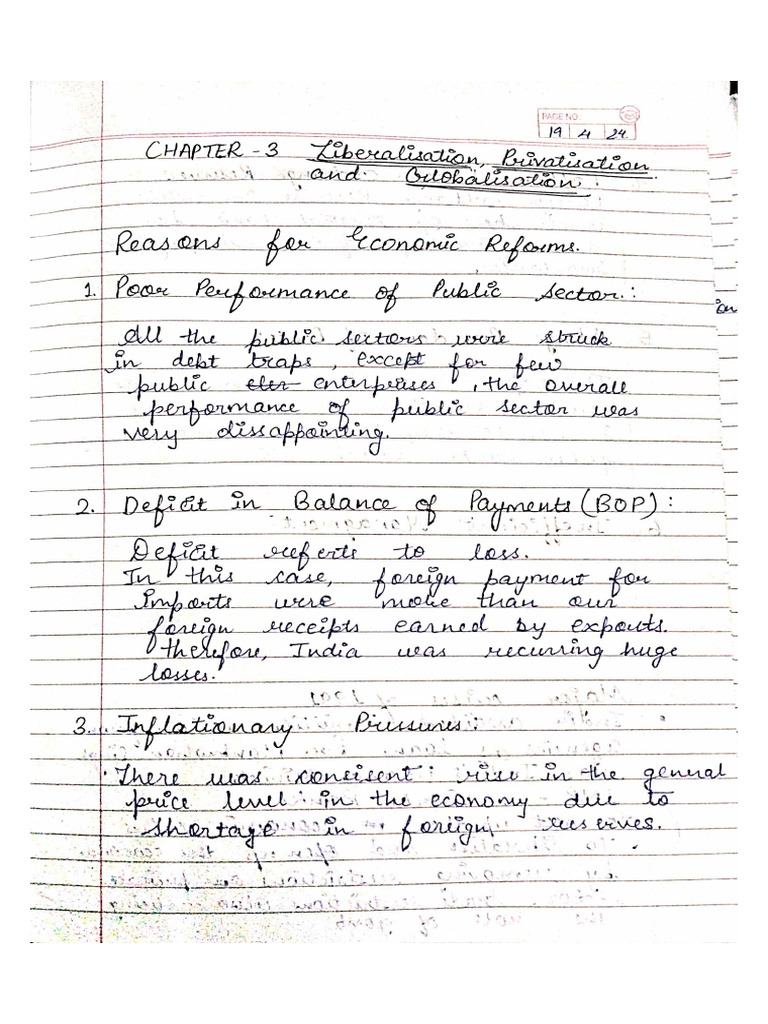 PAGE NO.
19 4 24
CHAPTER - 3 Liberalisation, Privatisation
and Globalisation.
Reasons for Economic Reforms.
1. Poor Performance of Public Sector.:
ion
All the public sectors were struck
in debt traps, except for few
public enterprises, the overall
performance of public sector was
very dissappointing.
2. Deficit in Balance of Payments (BOP) :
Deficit referts to loss.
In this case, foreign payment for
imports were more than our
foreign receipts earned by exports.
Therefore, India was recurring huge
losses.
3. Inflationary Pressures:
There was consisent rise in the general
price level in the economy due to
shortage in foreign reserves.